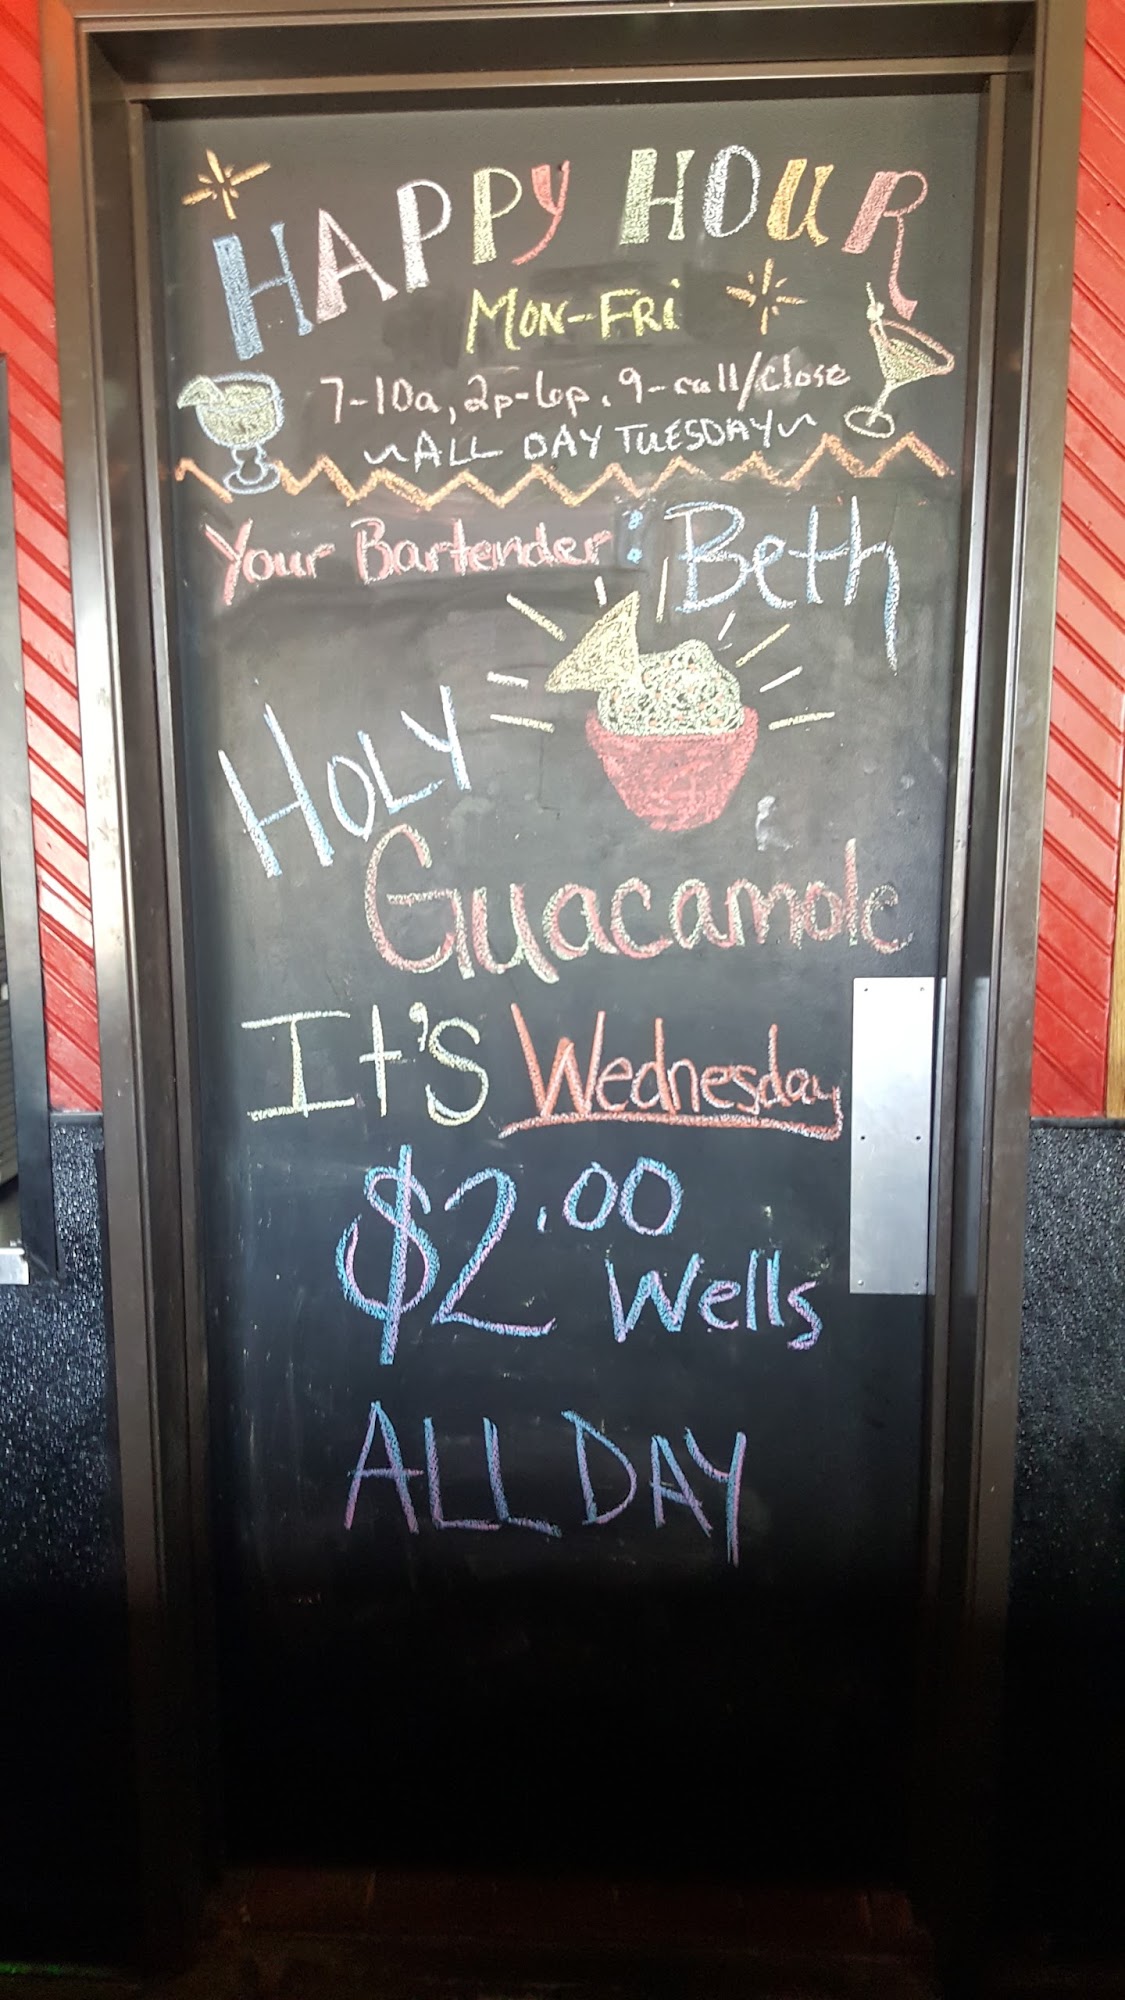 HAPPY HOUR
MON-FRI
7-10a, 2p-6p, 9-call/close
~ALL DAY TUESDAY~
Your Bartender: Beth
HOLY
Guacamole
It's Wednesday
$2.00 Wells
ALL DAY